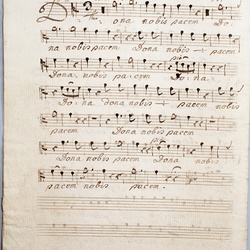 Dona nobis pacem Do-
na nobis pacem Dona nobis pacem
Dona nobis pacem Do: na
Do: na dona nobis pacem nobis
pacem Dona nobis pacem
Dona nobis pacem Dona nobis
pacem nobis pacem.